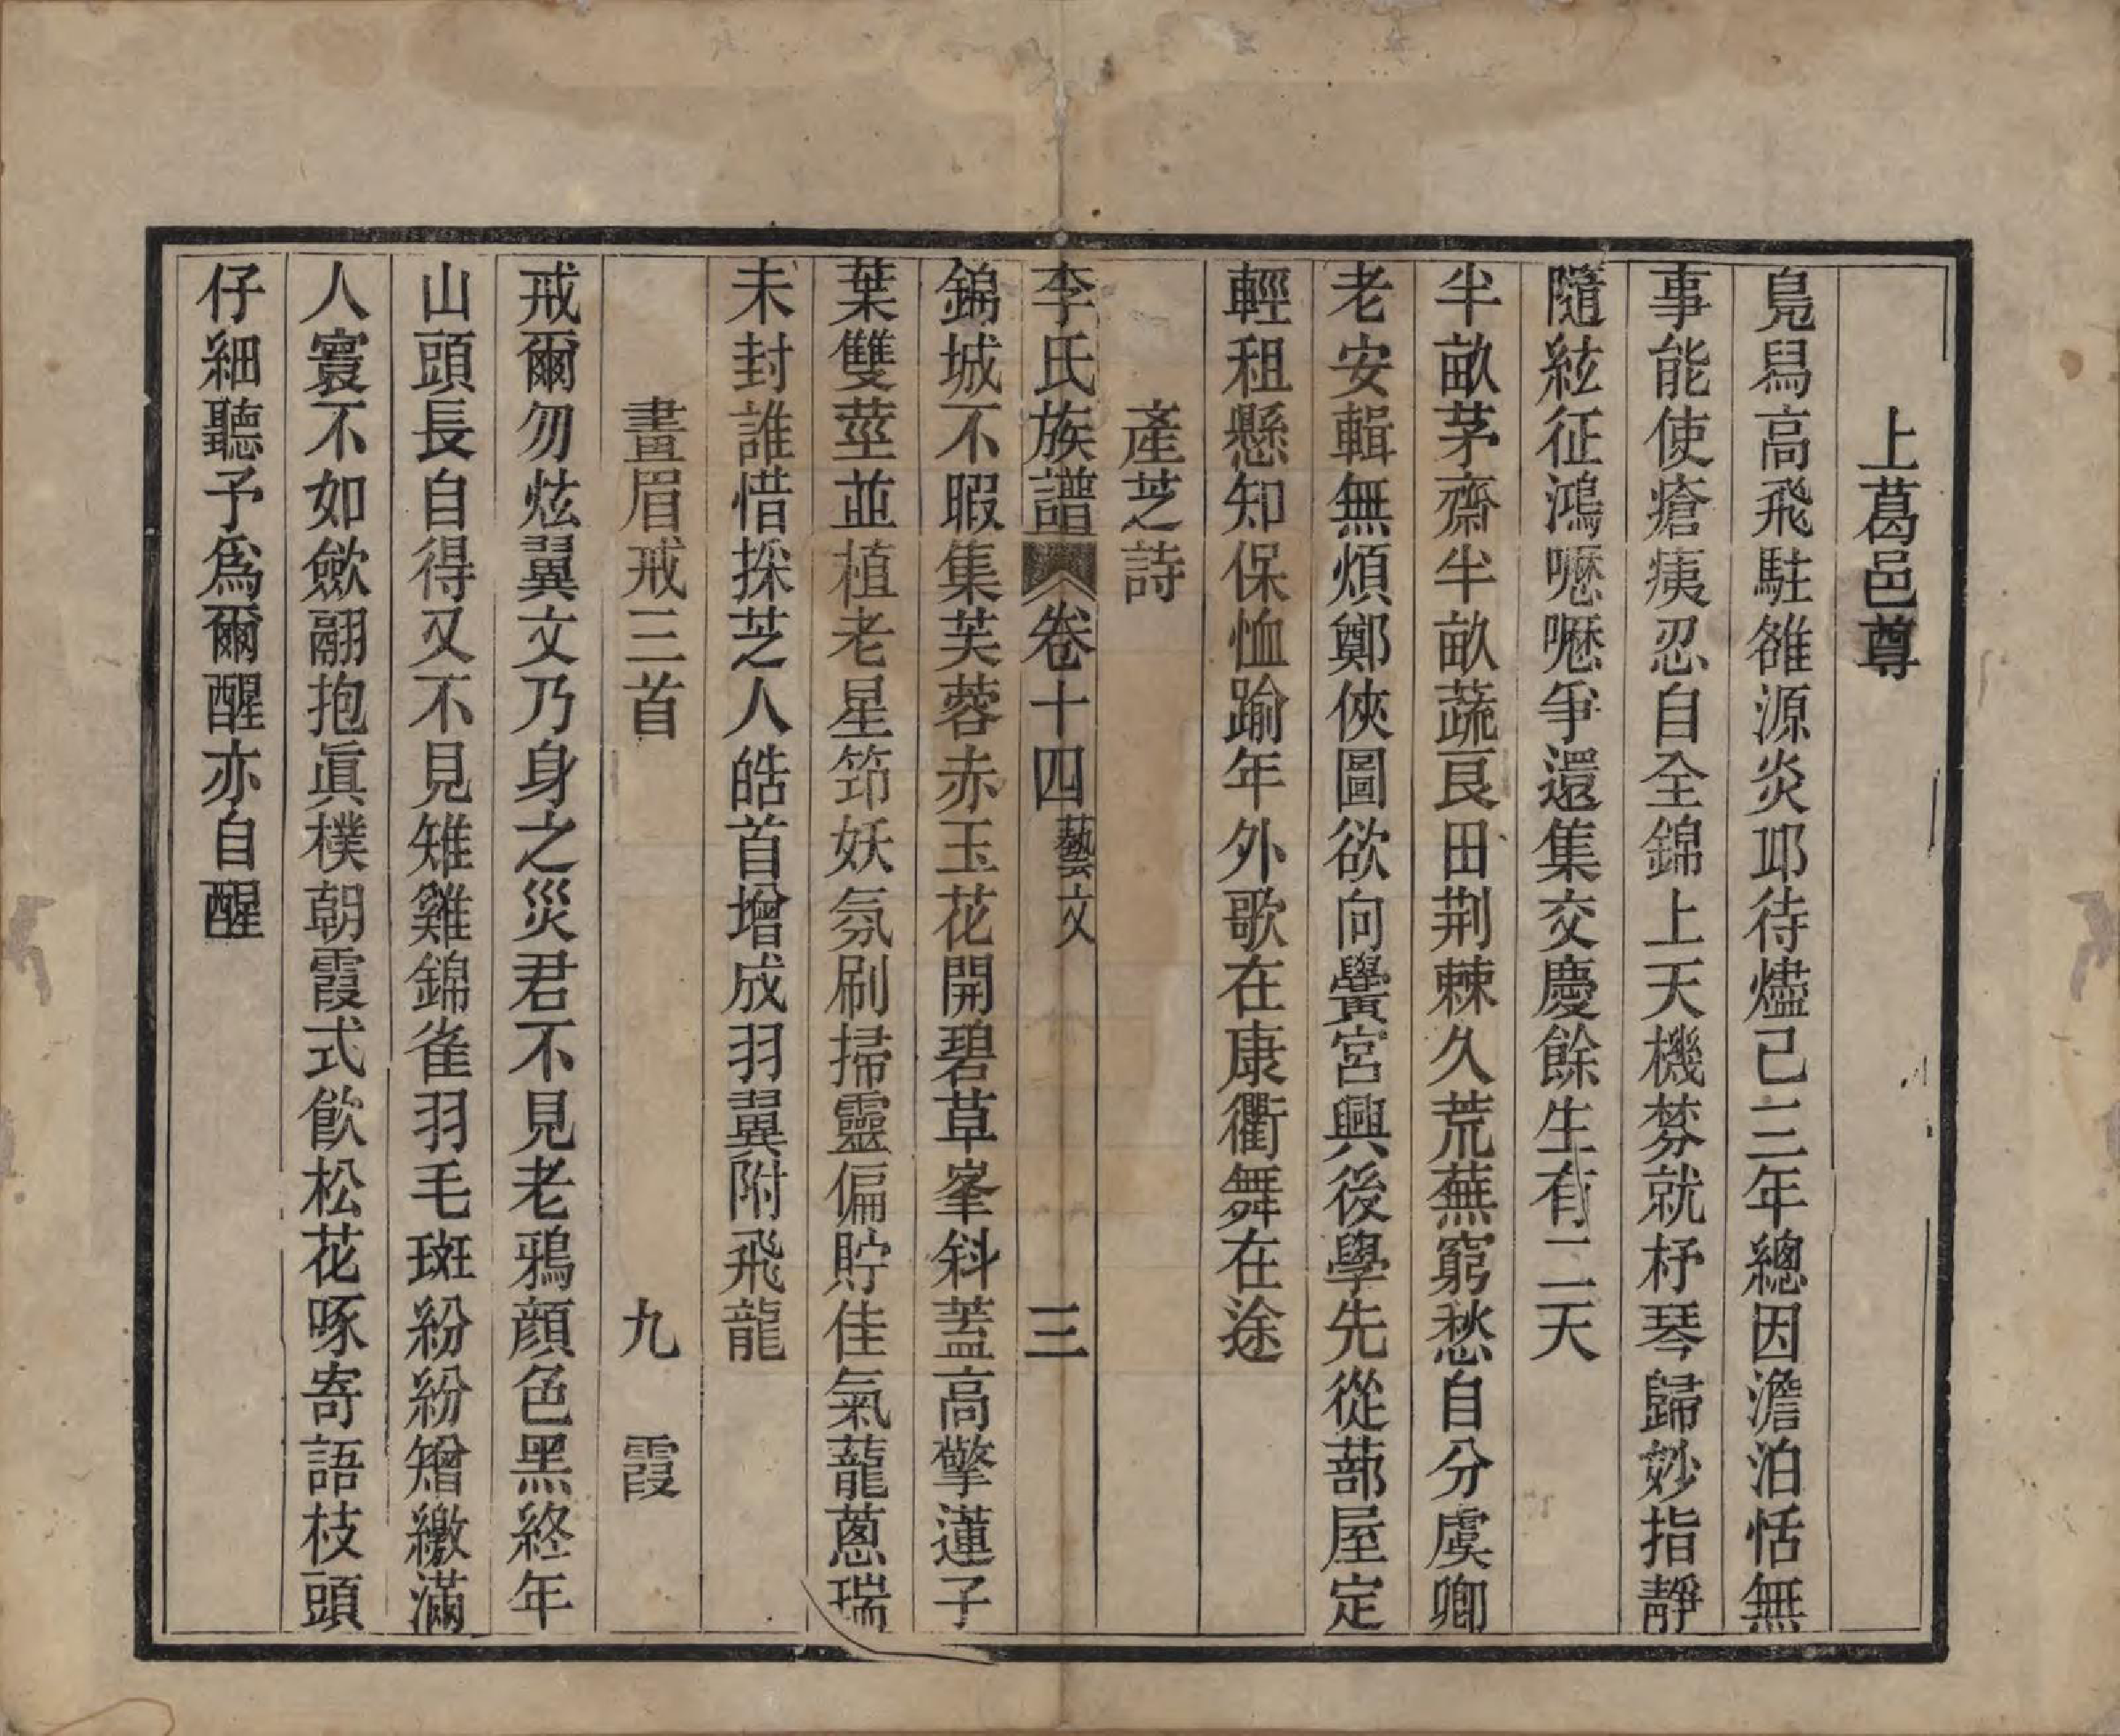 上葛邑尊
鳧舄高飛駐雒源炎邛待燼己三年總因澹泊恬無
事能使瘡痍忍自全錦上天機棼就杼琴歸妙指靜
隨絃征鴻嚦嚦爭還集交慶餘生有二天
半畝茅齋半畝蔬艮田荆棘久荒蕪窮愁自分虞卿
老安輯無煩鄭俠圖欲向黌宮興後學先從蔀屋定
輕租懸知保恤踰年外歌在康衢舞在途
產芝詩
李氏族譜 卷十四 藝文 三
錦城不暇集芙蓉赤玉花開碧草峯斜蓋高擎蓮子
葉雙莖並植老星筇妖氛刷掃靈偏貯佳氣蘢蔥瑞
未封誰惜採芝人皓首增成羽翼附飛龍
畫眉戒三首 九霞
戒爾勿炫翼文乃身之災君不見老鴉顔色黑終年
山頭長自得又不見雉雞錦雀羽毛斑紛紛矰繳滿
人寰不如歛翮抱眞樸朝霞式飮松花啄寄語枝頭
仔細聽予爲爾醒亦自醒